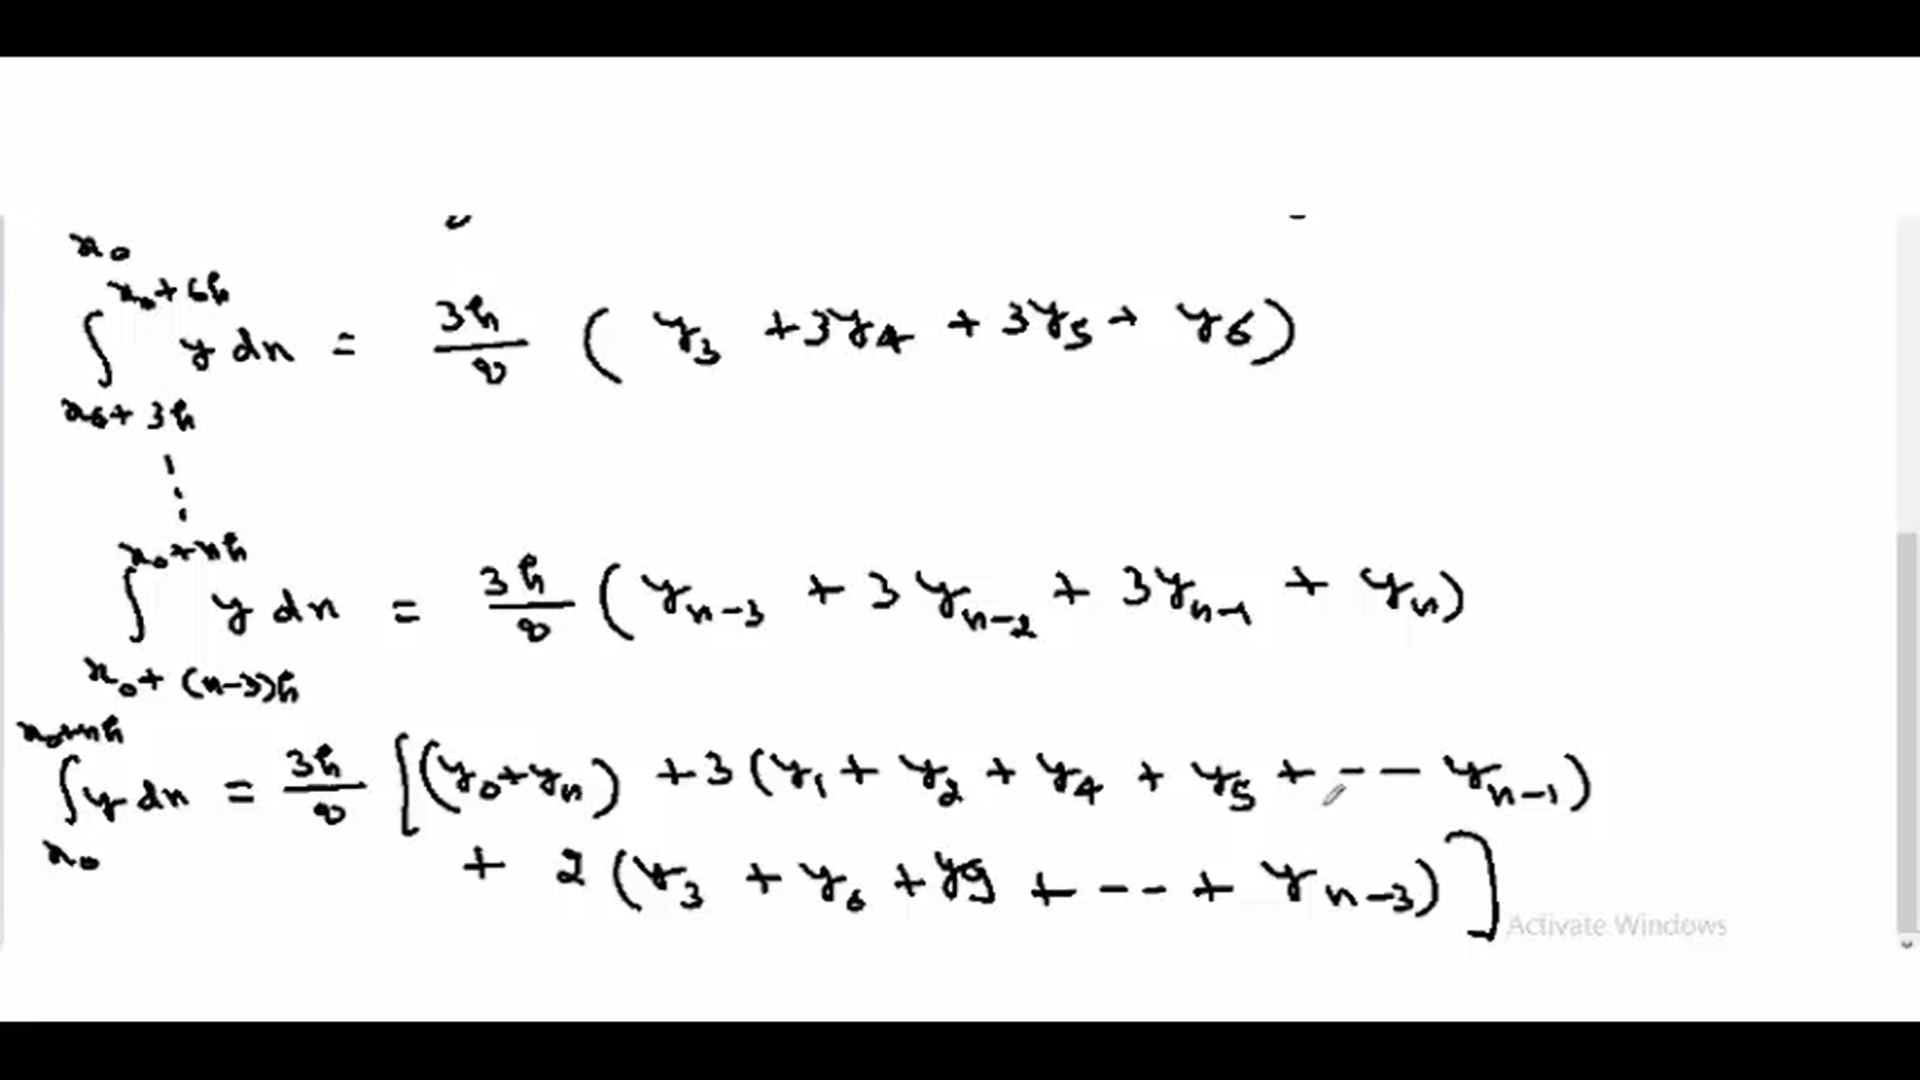 x₀
∫_{x₀+3h}^{x₀+6h} y dx = 3h/8 ( y₃ + 3y₄ + 3y₅ + y₆ )
∫_{x₀+(n-3)h}^{x₀+nh} y dx = 3h/8 ( y_{n-3} + 3y_{n-2} + 3y_{n-1} + y_n )
∫_{x₀}^{x₀+nh} y dx = 3h/8 [ (y₀+y_n) + 3(y₁ + y₂ + y₄ + y₅ + -- y_{n-1})
+ 2 (y₃ + y₆ + y₉ + -- + y_{n-3}) ]
Activate Windows